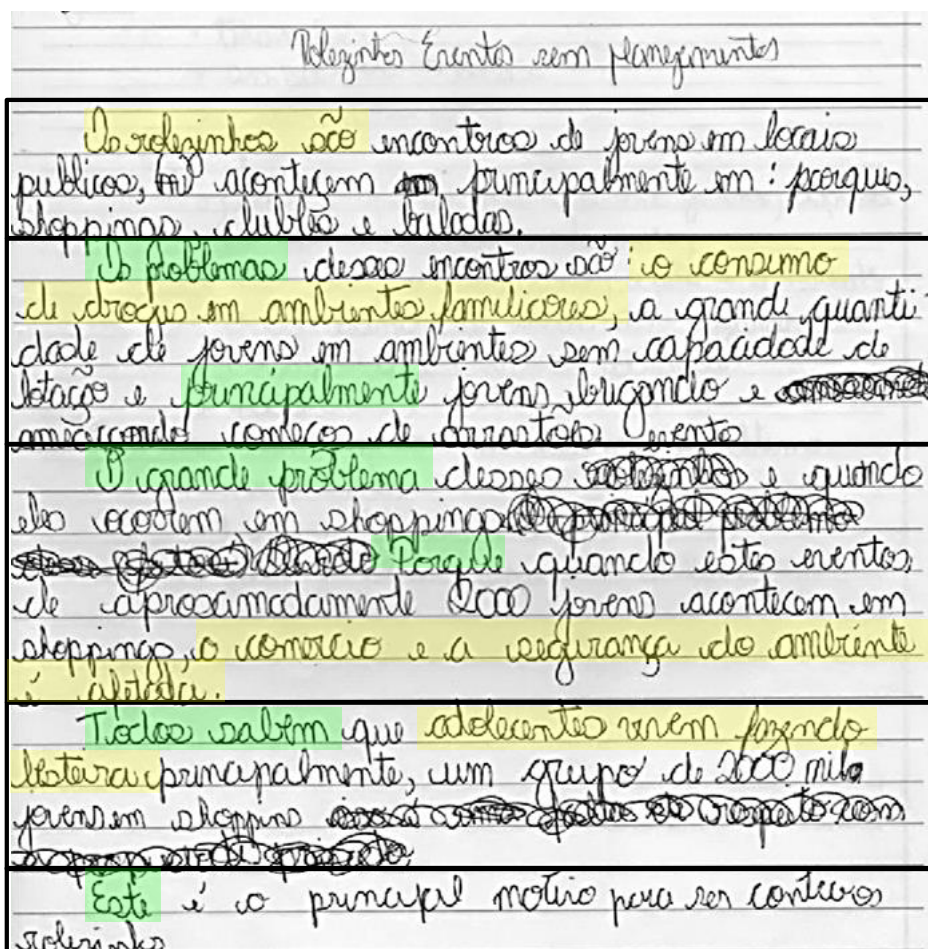 Rolezinhos Eventos sem planejamentos
Os rolezinhos são encontros de jovens em locais
publicos, acontecem principalmente em: parques,
shoppings, clubes e baladas.
Os problemas desses encontros são: o consumo
de drogas em ambientes familiares, a grande quanti
dade de jovens em ambientes sem capacidade de
lotação e principalmente jovens brigando e
começos de arrastões eventos
O grande problema desses e quando
eles ocorrem em shoppings
Porque quando estes eventos,
de aproximadamente 2000 jovens acontecem em
shoppings, o comercio e a segurança do ambiente
é afetada.
Todos sabem que adolecentes vivem fazendo
besteira principalmente, um grupo de 2000 mil
jovens em shoppins
Este é o principal motivo para ser contra os
rolezinhos